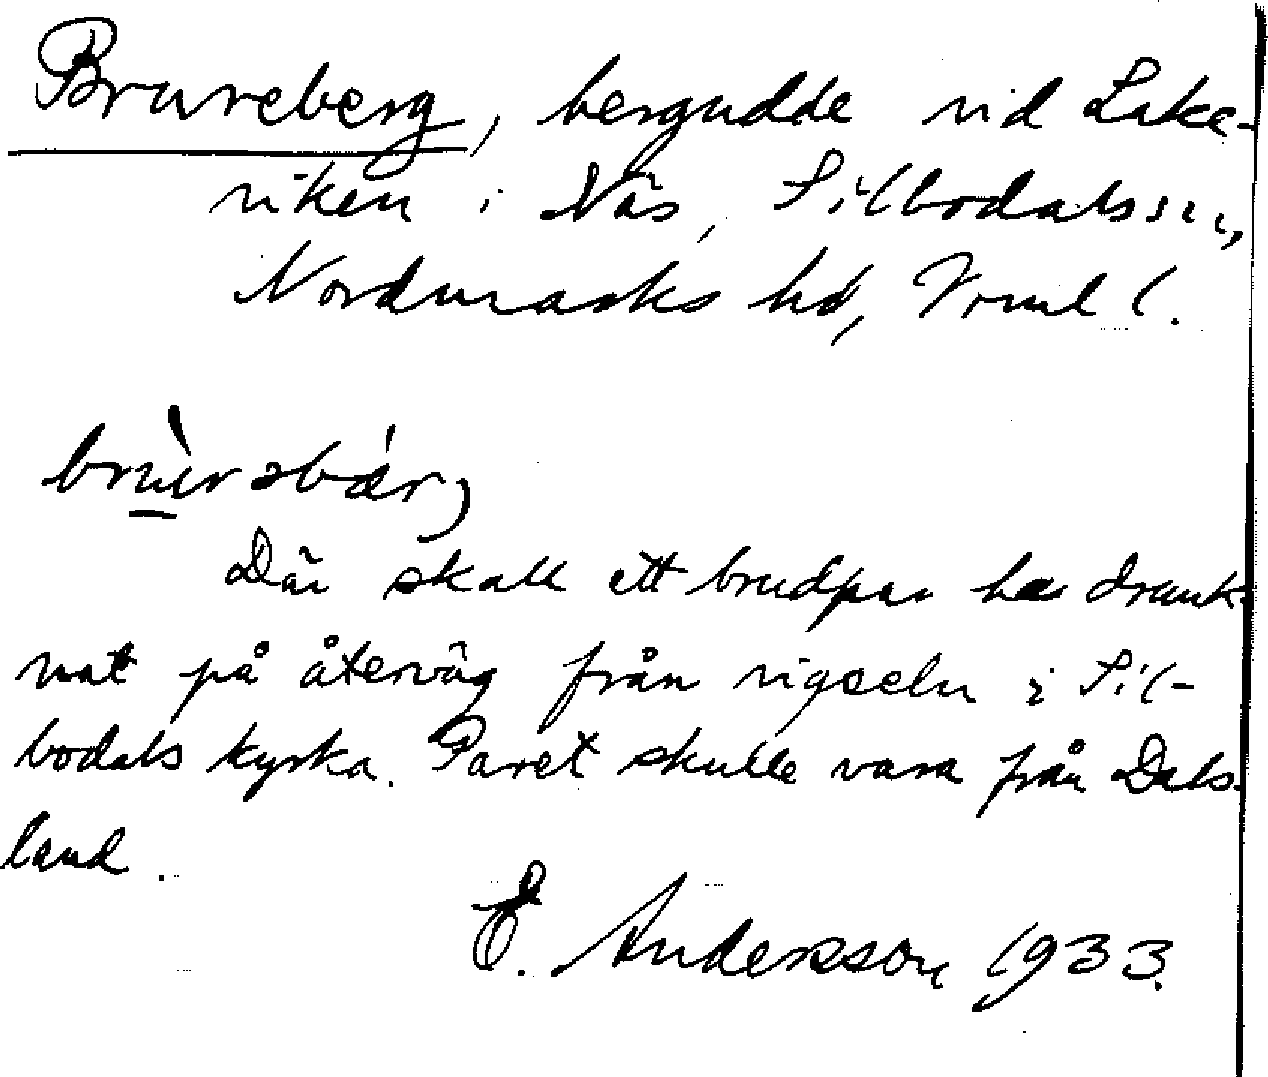 Brureberg, bergudde vid Lake-
viken i Näs, Silbodals sn,
Nordmarks hd, Vrml l.
Där skall ett brudpar ha drunk-
nat på återväg från vigseln i Sil-
bodals kyrka. Paret skulle vara från Dals-
land.
E. Andersson 1933.